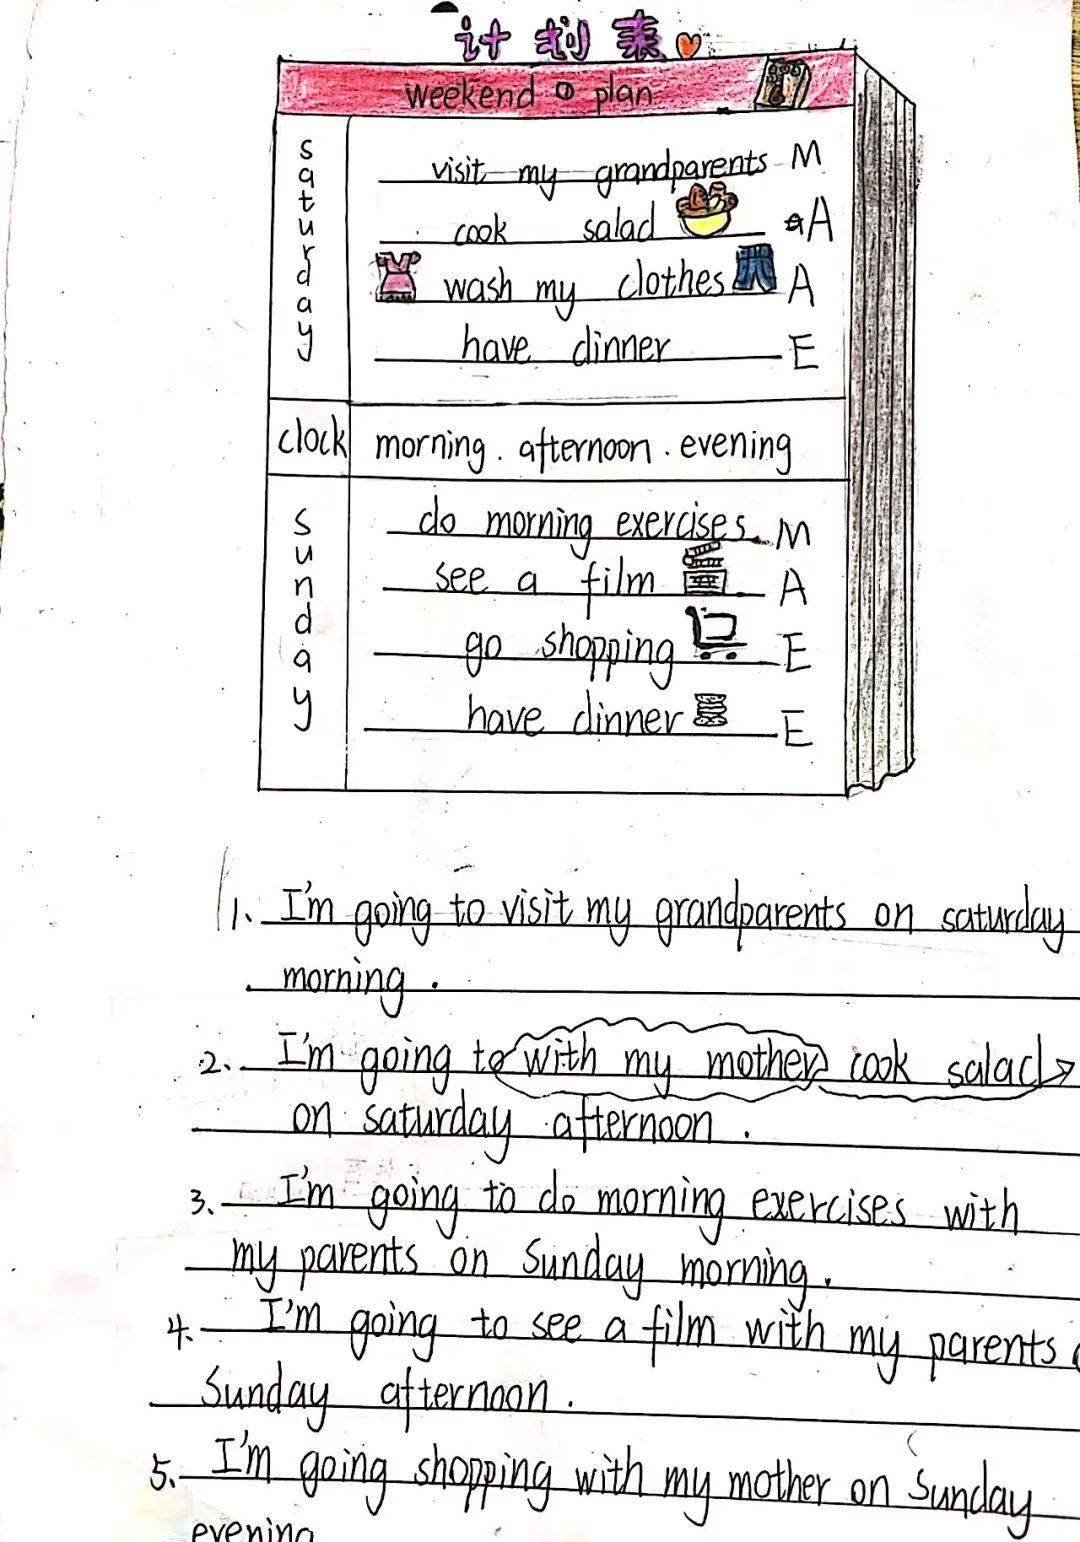 计划表
weekend plan
saturday
visit my grandparents M
cook salad A
wash my clothes A
have dinner E
clock morning . afternoon . evening
sunday
do morning exercises. M
see a film A
go shopping E
have dinner E
1、I'm going to visit my grandparents on saturday
morning .
2、I'm going to with my mother cook salad
on saturday afternoon .
3、I'm going to do morning exercises with
my parents on Sunday morning.
4、I'm going to see a film with my parents
Sunday afternoon .
5、I'm going shopping with my mother on Sunday
evening